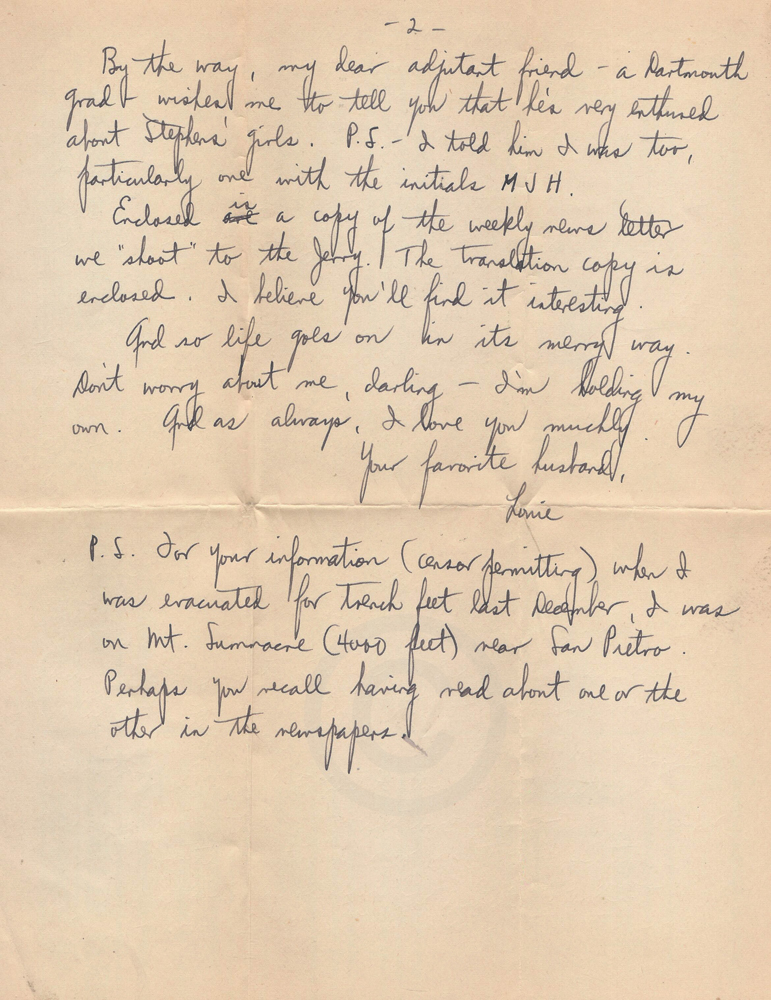 - 2 -
By the way, my dear adjutant friend - a Dartmouth
grad - wishes me to tell you that he's very enthused
about Stephens' girls. P.S. - I told him I was too,
particularly one with the initials MJH.
Enclosed are is a copy of the weekly news letter
we "shoot" to the Jerry. The translation copy is
enclosed. I believe you'll find it interesting.
And so life goes on in its merry way.
Don't worry about me, darling - I'm holding my
own. And as always, I love you muchly.
Your favorite husband,
Louie
P.S. For your information (censor permitting) when I
was evacuated for trench feet last December, I was
on Mt. Summacre (4000 feet) near San Pietro.
Perhaps you recall having read about one or the
other in the newspapers.